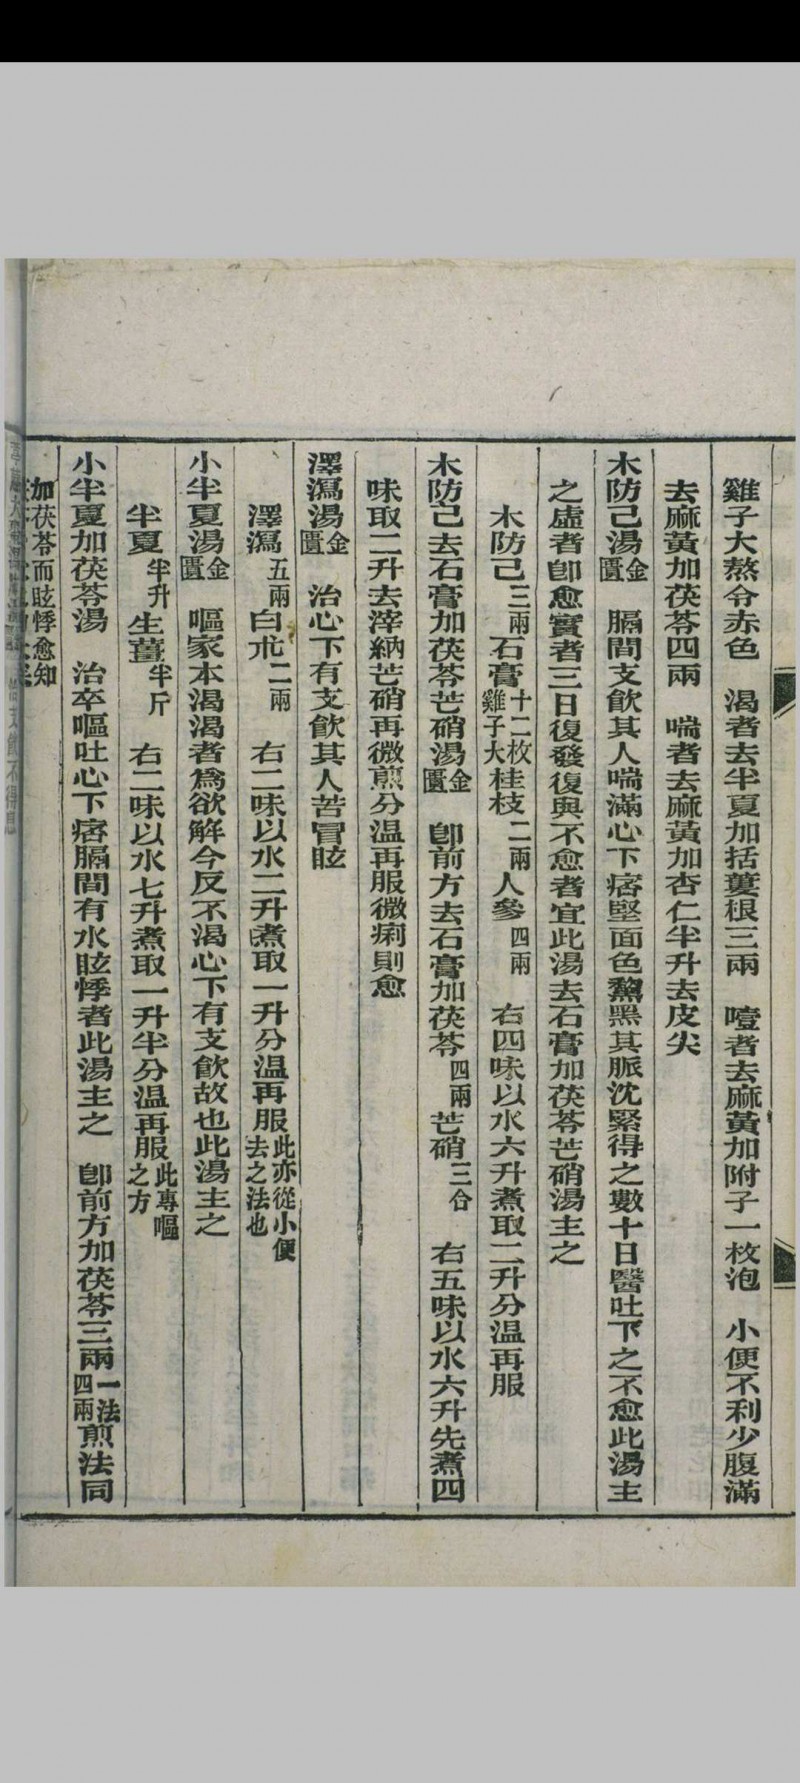 雞子大熬令赤色　渴者去半夏加括蔞根三兩　噎者去麻黃加附子一枚泡　小便不利少腹滿
去麻黃加茯苓四兩　喘者去麻黃加杏仁半升去皮尖
木防己湯金匱　膈間支飲其人喘滿心下痞堅面色黧黑其脈沈緊得之數十日醫吐下之不愈此湯主
之虛者卽愈實者三日復發復與不愈者宜此湯去石膏加茯苓芒硝湯主之
木防己三兩石膏十二枚雞子大桂枝二兩人參四兩　右四味以水六升煮取二升分溫再服
木防己去石膏加茯苓芒硝湯金匱　卽前方去石膏加茯苓四兩芒硝三合　右五味以水六升先煮四
味取二升去滓納芒硝再微煎分溫再服微痢則愈
澤瀉湯金匱　治心下有支飲其人苦冒眩
澤瀉五兩白朮二兩　右二味以水二升煮取一升分溫再服此亦從小便去之法也
小半夏湯金匱　嘔家本渴渴者爲欲解今反不渴心下有支飲故也此湯主之
半夏半升生薑半斤　右二味以水七升煮取一升半分溫再服此專嘔之方
小半夏加茯苓湯　治卒嘔吐心下痞膈間有水眩悸者此湯主之　卽前方加茯苓三兩一法四兩煎法同
加茯苓而眩悸愈知